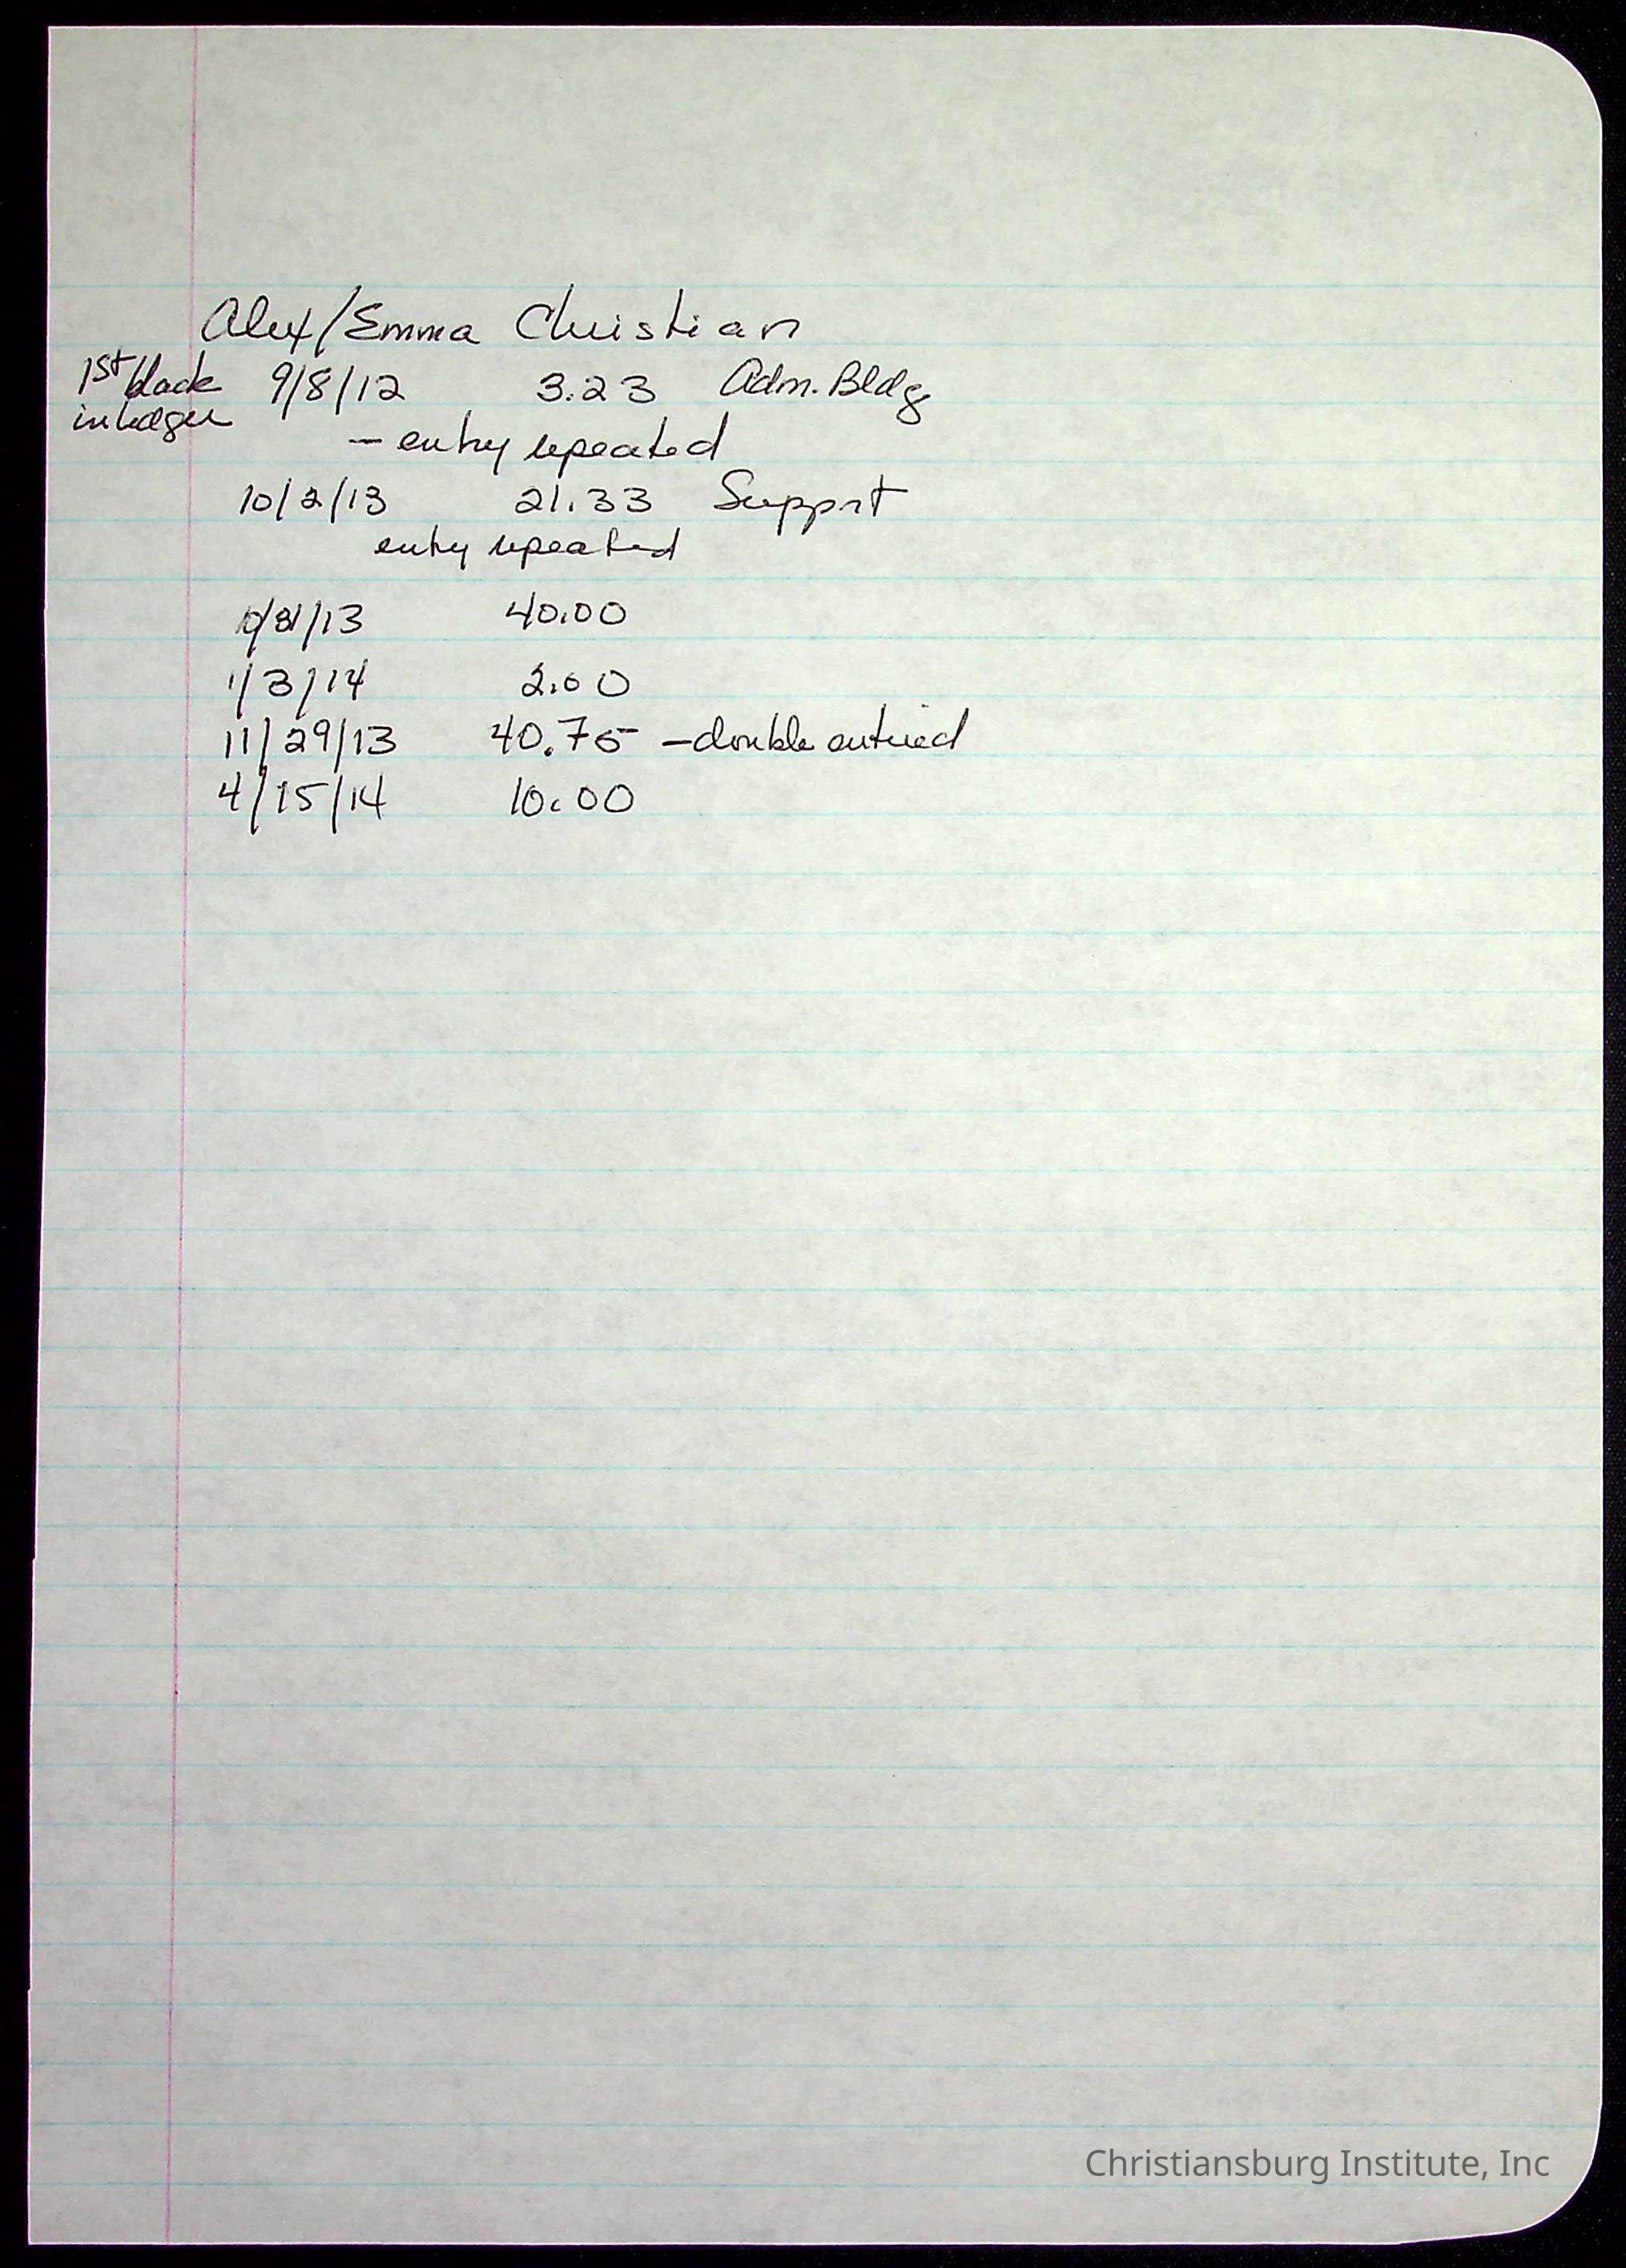 Alex/Emma Christian
1st black 9/8/12 3.23 Adm. Bldg
in ledger
- entry repeated
10/2/13 21.33 Support
entry repeated
40.00
1/3/14 2.00
11/29/13 40.75 - double entered
4/15/14 10.00
Christiansburg Institute, Inc